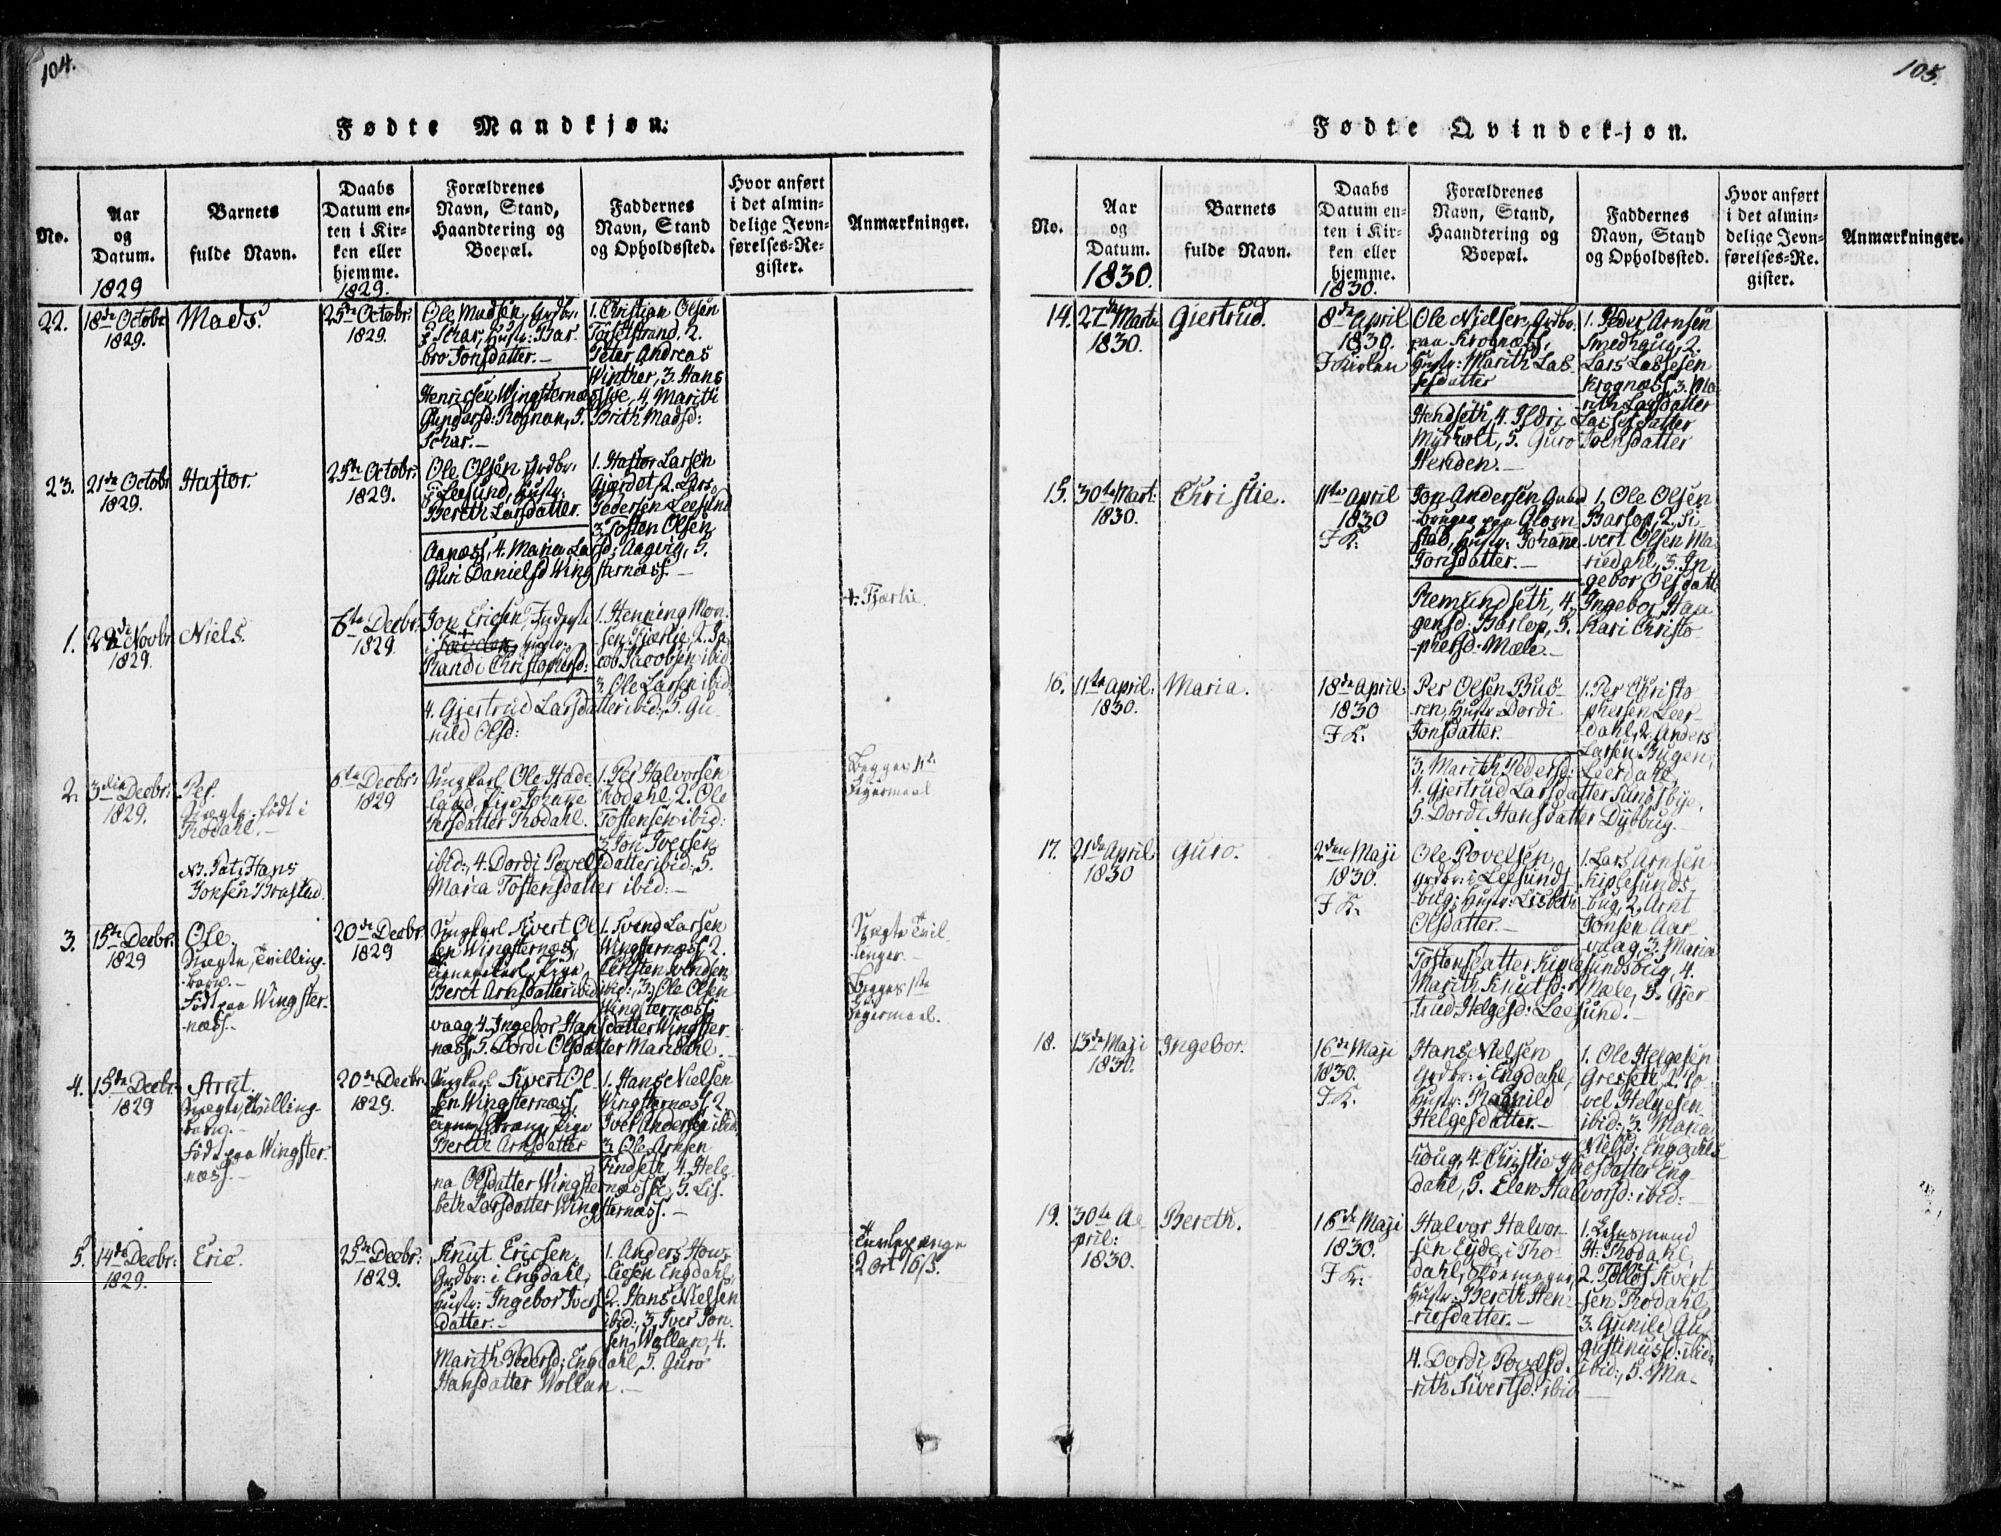 104.
Fødte Mandkjøn.
No.
Aar
og
Datum.
1829
Barnets
fulde Navn.
Daabs
Datum en-
ten i Kir-
ken eller
hjemme.
1829.
Forældrenes
Navn, Stand,
Haandtering og
Boepæl.
Faddernes
Navn, Stand
og Opholdssted.
Hvor anført
i det almin-
delige Jevn-
førelses-Re-
gister.
Anmærkninger.
22.
18de Octobr
1829.
Mads.
25de Octobr:
1829.
Ole Madsen, Grdbr.
i Schar, Hustr: Bar-
bro Jonsdatter.-
1. Christian Olsen
2.
Peter Andreas
Winther, 3. Hans
Henricsen Wingsternæs, 4. Marith
Gundersd: Rognan, 5. Brith Madsd:
Schar.-
23.
21de Octobr
1829.
Hastor.
25de Octobr:
1829.
Ole Olsen, Grdbr.
i Leesund, Hustr:
Bereth Larsdatter.
1. Hastor Larsen
Gjærdet, 2. Lars
Pedersen Leesund
3. Tosten Olsen
Aanæss, 4. Maria Larsd: Aagvig, 5.
Guri Danielsd Wingsternæss.-
1.
Novbr
1829.
Niels.
6te Decbr:
1829.
Jon Ericsen,
i Hustr:
Randi Christophersd:
1. Henning Mon-
sen Kjærlie, 2. Ja-
cob Jacobsen ibid
3. Ole Larsen ibid.
4. Gjertrud Larsdatter ibid:, 5. Gu-
nild Olsd:
2.
3die Decbr:
1829.
Per.
Uægte, født i
Thodahl.-
NB. Pat: Hans
Jonsen Brøstad.
6te Decbr:
1829
Ungkarl Ole Hade-
land, Pige Johanne
Persdatter Thodahl.
1. Per Halvorsen
Thodahl, 2. Ole
Tostensen ibid:
3. Jon Iversen
ibid:, 4. Dordi Povelsdatter ibid:, 5
Maria Tostensdatter ibid:-
Begges 1ste
Leiermaal
3.
15de Decbr:
1829
Ole.
Uægte, Tvilling-
barn.-
Født paa Wingster-
næss.
20de Decbr
1829
Ungkarl Sivert Ol-
sen Wingsternæss,
Pige
Beret Arnsdatter ibid
1. Svend Larsen
Wingsternæss, 2.
Christen Svendsen
ibid:, 3. Ole Olsen
Wingsternæss
vaag 4. Ingebor Hansdatter Wingster-
næss, 5. Dordi Olsdatter Mariedahl.-
Uægte Tvil
linger.-
Begges 1ste
Leiermaal.
4.
15de Decbr:
1829
Arnt.
Uægte, Tvilling-
barn.-
Født paa Wingster-
næss.-
20de Decbr:
1829.
Ungkarl Sivert Ol-
sen Wingsternæss,
Pige
Bereth Arnsdatter
1. Hans Nielsen
Wingsternæss, 2.
Iver Andersen ibid
3. Ole Arnsen
Sindseth, 4. Hele-
na Olsdatter Wingsternæss, 5. Lis-
beth Larsdatter Wingsternæss.-
5.
14de Decbr:
1829.
Eric.
25de Decbr:
1829.
Knut Ericsen,
Grdbr: i Engdahl,
Hustr: Ingebor Ivers-
datter.-
1. Anders
Engdahl,
2. Hans Nielsen
ibid:, 3. Iver Jon-
sen Wollan, 4.
Marith Pedersd: Engdahl, 5. Guro
Hansdatter Wollan.-
2 Ort 16 s.
+. Kjærlie.
105.
Fødte Qvindekjøn.
No.
Aar
og
Datum.
1830.
Barnets
fulde Navn.
Daabs
Datum en-
ten i Kir-
ken eller
hjemme.
1830.
Forældrenes
Navn, Stand,
Haandtering og
Boepæl.
Faddernes
Navn, Stand
og Opholdssted.
Hvor anført
i det almin-
delige Jevn-
førelses-Re-
gister.
Anmærkninger.
14.
27de Marti
1830.
Giertrud.
8de April
1830.
I Kirken
Ole Nielsen, Grdbr.
paa Krognæss,
Hustr: Marith Las-
sesdatter
1. Peder Arnsen
Smedhaug, 2.
Lars Lassesen
Krognæss, 3. Ma-
rith Larsdatter
Hendseth, 4. Ildri Lassesdatter
Myrholt, 5. Guro Tolnsdatter
Henden.-
15.
30te Mart:
1830.
Christie.
11te April
1830
I K:
Jon Andersen Gaard
bruger paa Glom
stad, Hustr: Johane
Jonsdatter.-
1. Ole Olsen
Barlop, 2. Si
vert Olsen Ma
riedahl, 3. In
gebor Olsdatter
Remundseth, 4. Ingebor Haa
gensd: Barlop, 5. Kari Christo-
phersd: Mæle.-
16.
11te April:
1830.
Maria.
18de April
1830
I K:
Per Olsen Buø-
ren, Hustr: Dordi
Jonsdatter.
1. Per Christo
phersen Leer-
dahl, 2. Anders
Larsen Bugen,
3. Marith Pedersd: Leerdahl,
4. Gjertrud Larsdatter Sundsbye,
5. Dordi Hansdatter Dybbug.-
17.
21de April:
1830
Guro.
2den Maji
1830.
I K:
Ole Povelsen
Grdbr: i Leesunds-
bug, Hustr: Lisbeth
Olsdatter.-
1. Lars Arnsen
Kiplesunds-
bug, 2. Arnt
Jonsen Aar
vaag, 3. Maria
Tostensdatter Kiplesundsbug, 4.
Marith Knutsd: Mæle, 5. Gjer-
trud Helgesd: Leesund.-
18.
13de Maji
1830.
Ingebor.
16de Maji
1830.
I K:
Hans Nielsen
Grdbr: i Engdahl,
Hustr: Ragnild
Helgesdatter.-
1. Ole Helgesen
Gresett, 2. Po
vel Helgesen
ibid:, 3. Maria
Nielsd: Engdahls
bug, 4. Christie datter Eng-
dahl, 5. Elen Halvorsd: ibid:-
19.
30te A-
pril:
1830.
Bereth.
16de Maji
1830.
I K:
Halvor Halvor-
sen Eyde, i Tho-
dahl, Skomager,
Hustr: Bereth Hen-
ricsdatter.-
1. Lehnsmand
H: Thodahl,
2. Tollof Sivert
sen Thodahl,
3. Gunild Au-
gustinusd: ibid:
4. Dordi Povelsd: ibid:, 5. Ma-
rith Sivertsd: ibid